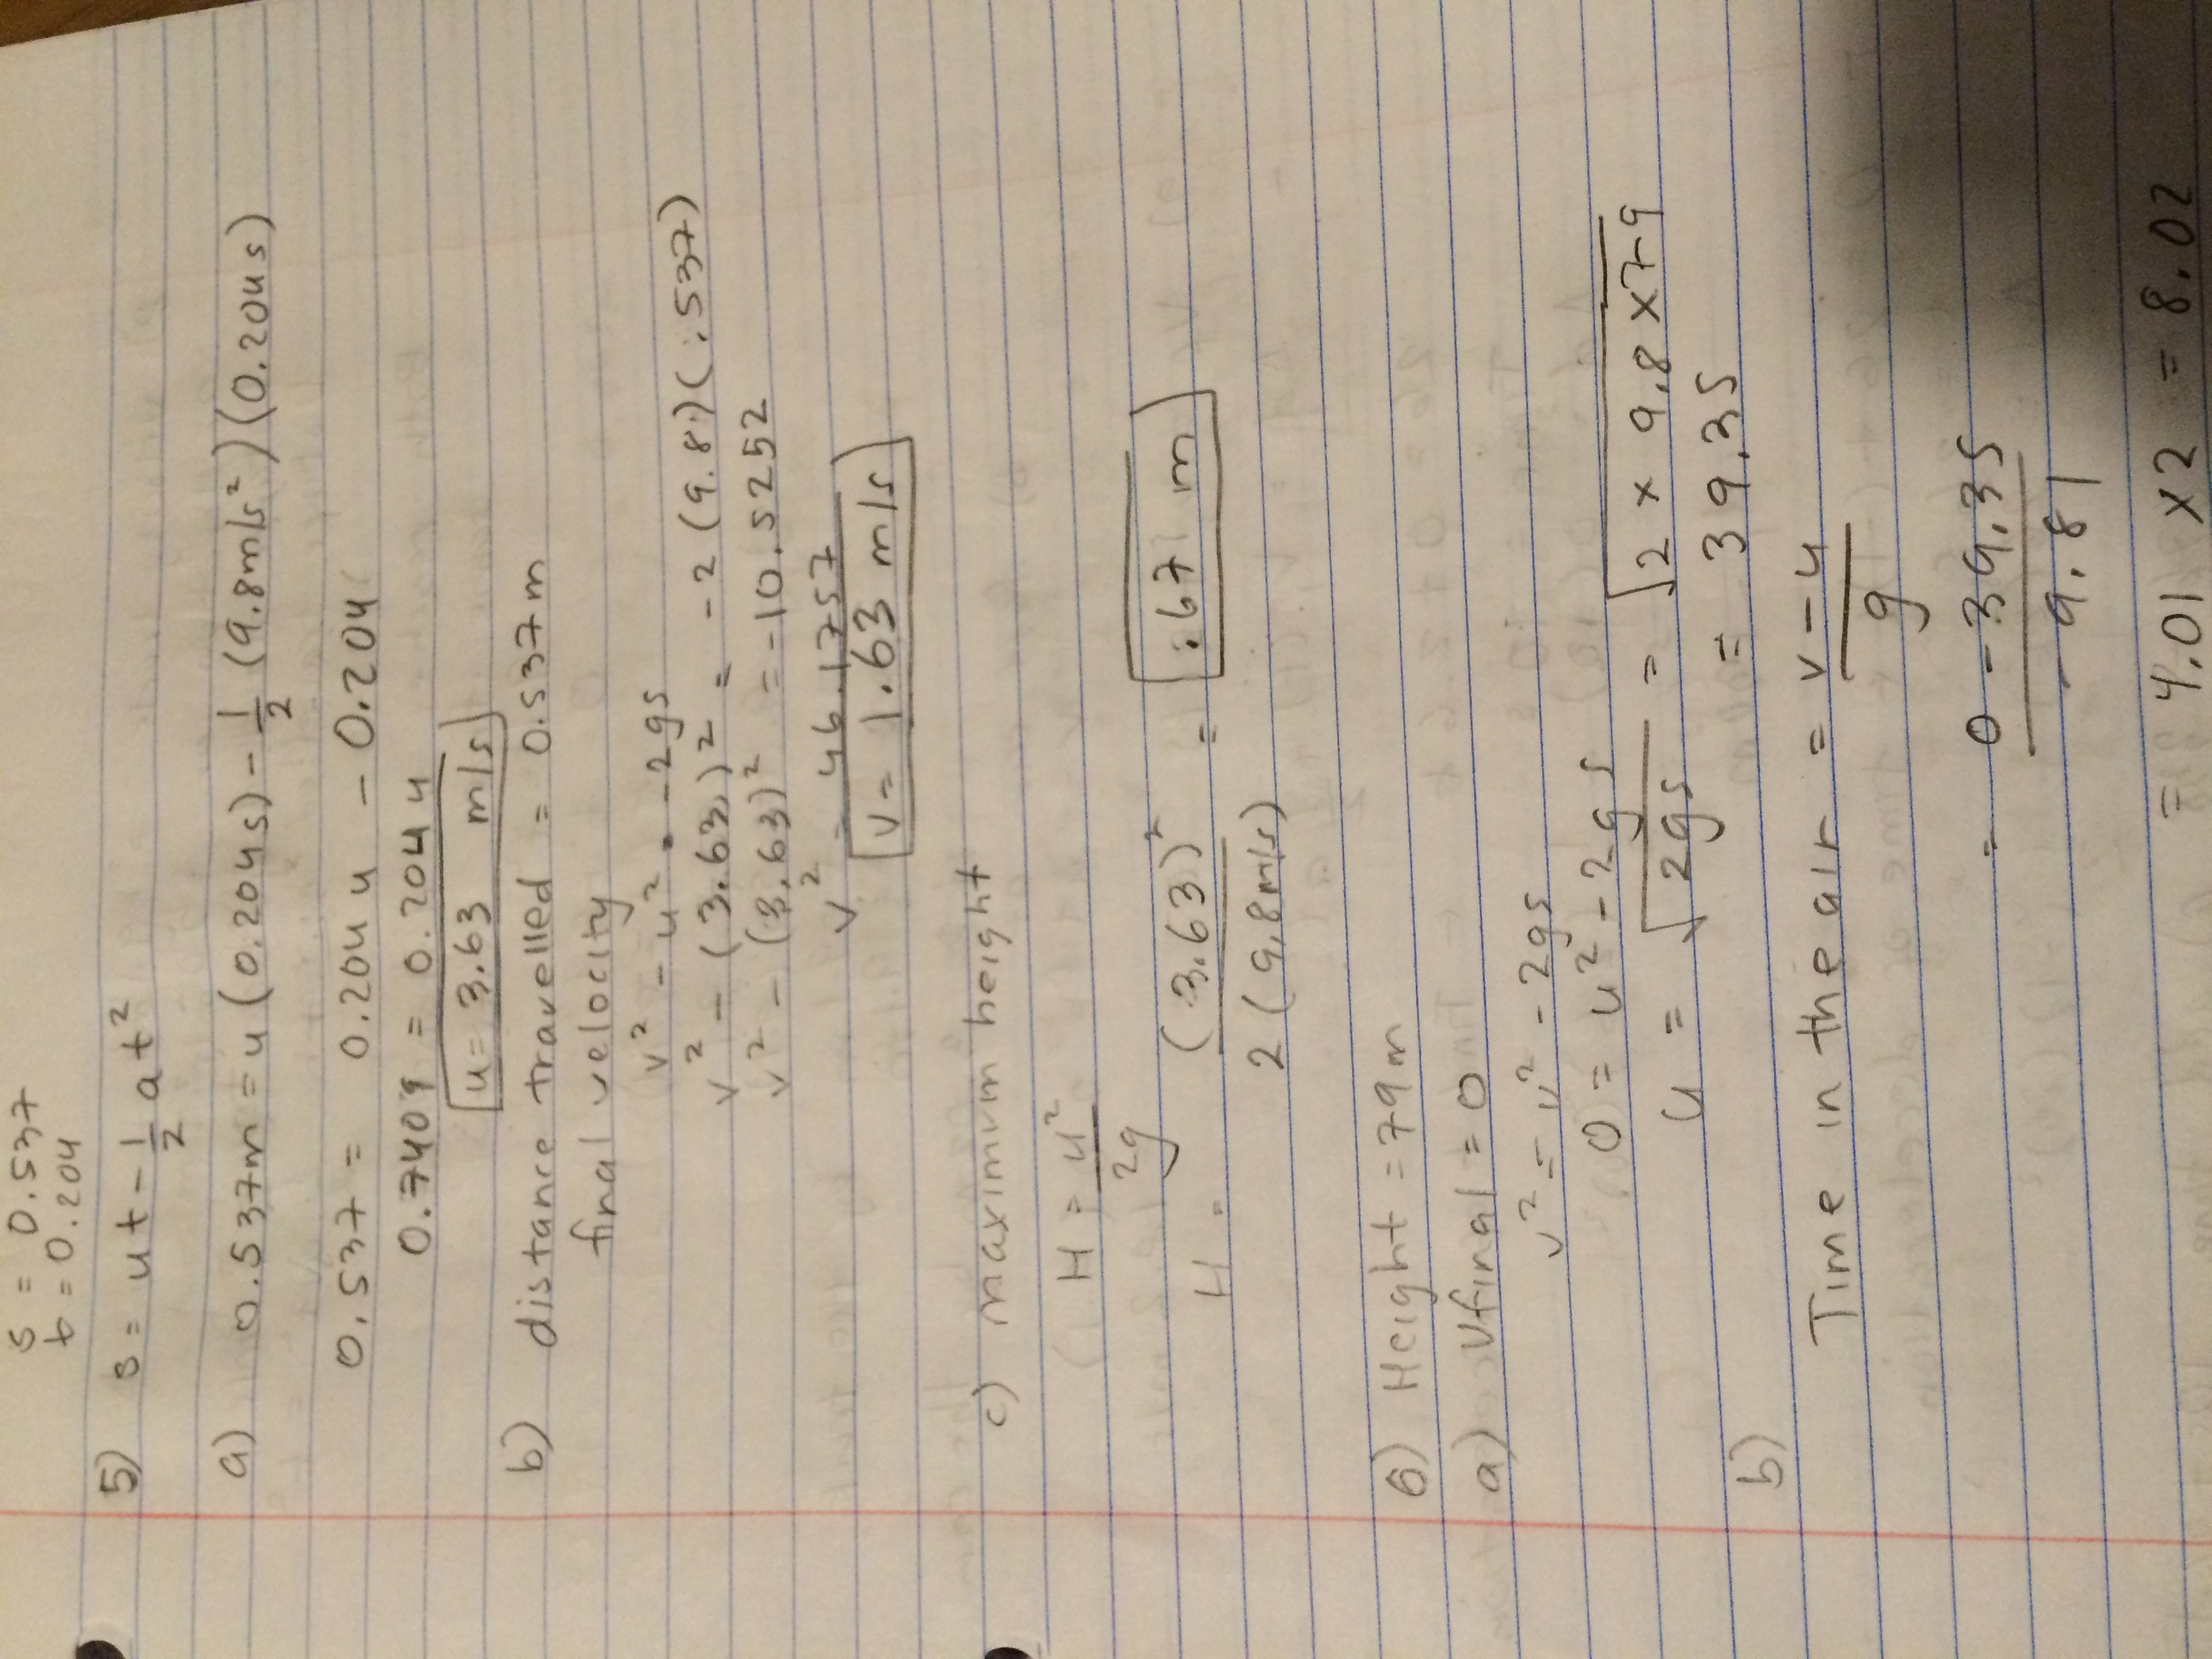 s = 0.537
t = 0.204
5) s = ut - 1/2 at²
a) 0.537m = u(0.204s) - 1/2 (9.8m/s²)(0.204s)
0.537 = 0.204u - 0.204
0.7409 = 0.204u
u = 3.63 m/s
b) distance travelled = 0.537m
final velocity
v² - u² = -2gs
v² - (3.63)² = -2(9.8)(.537)
v² - (3.63)² = -10.5252
v² = 46.1757
v = 1.63 m/s
c) maximum height
H = u²/2g
H = (3.63)²/2(9.8m/s) = .67 m
6) Height = 79m
a) Vfinal = 0
v² = u² - 2gs
0 = u² - 2gs
u = √2gs = √2 × 9.8 × 79
= 39.35
b) Time in the air = v-u/g
= 0 - 39.35/-9.81
= 4.01 × 2 = 8.02